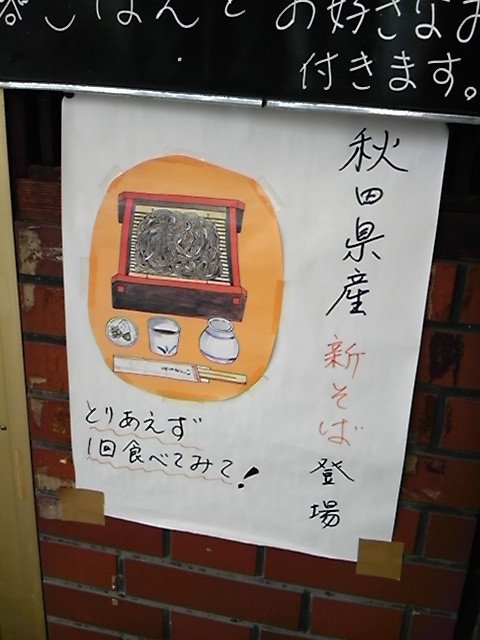 ごはんとお好きなお
付きます。
秋田県産 新そば 登場
とりあえず
1回食べてみて!